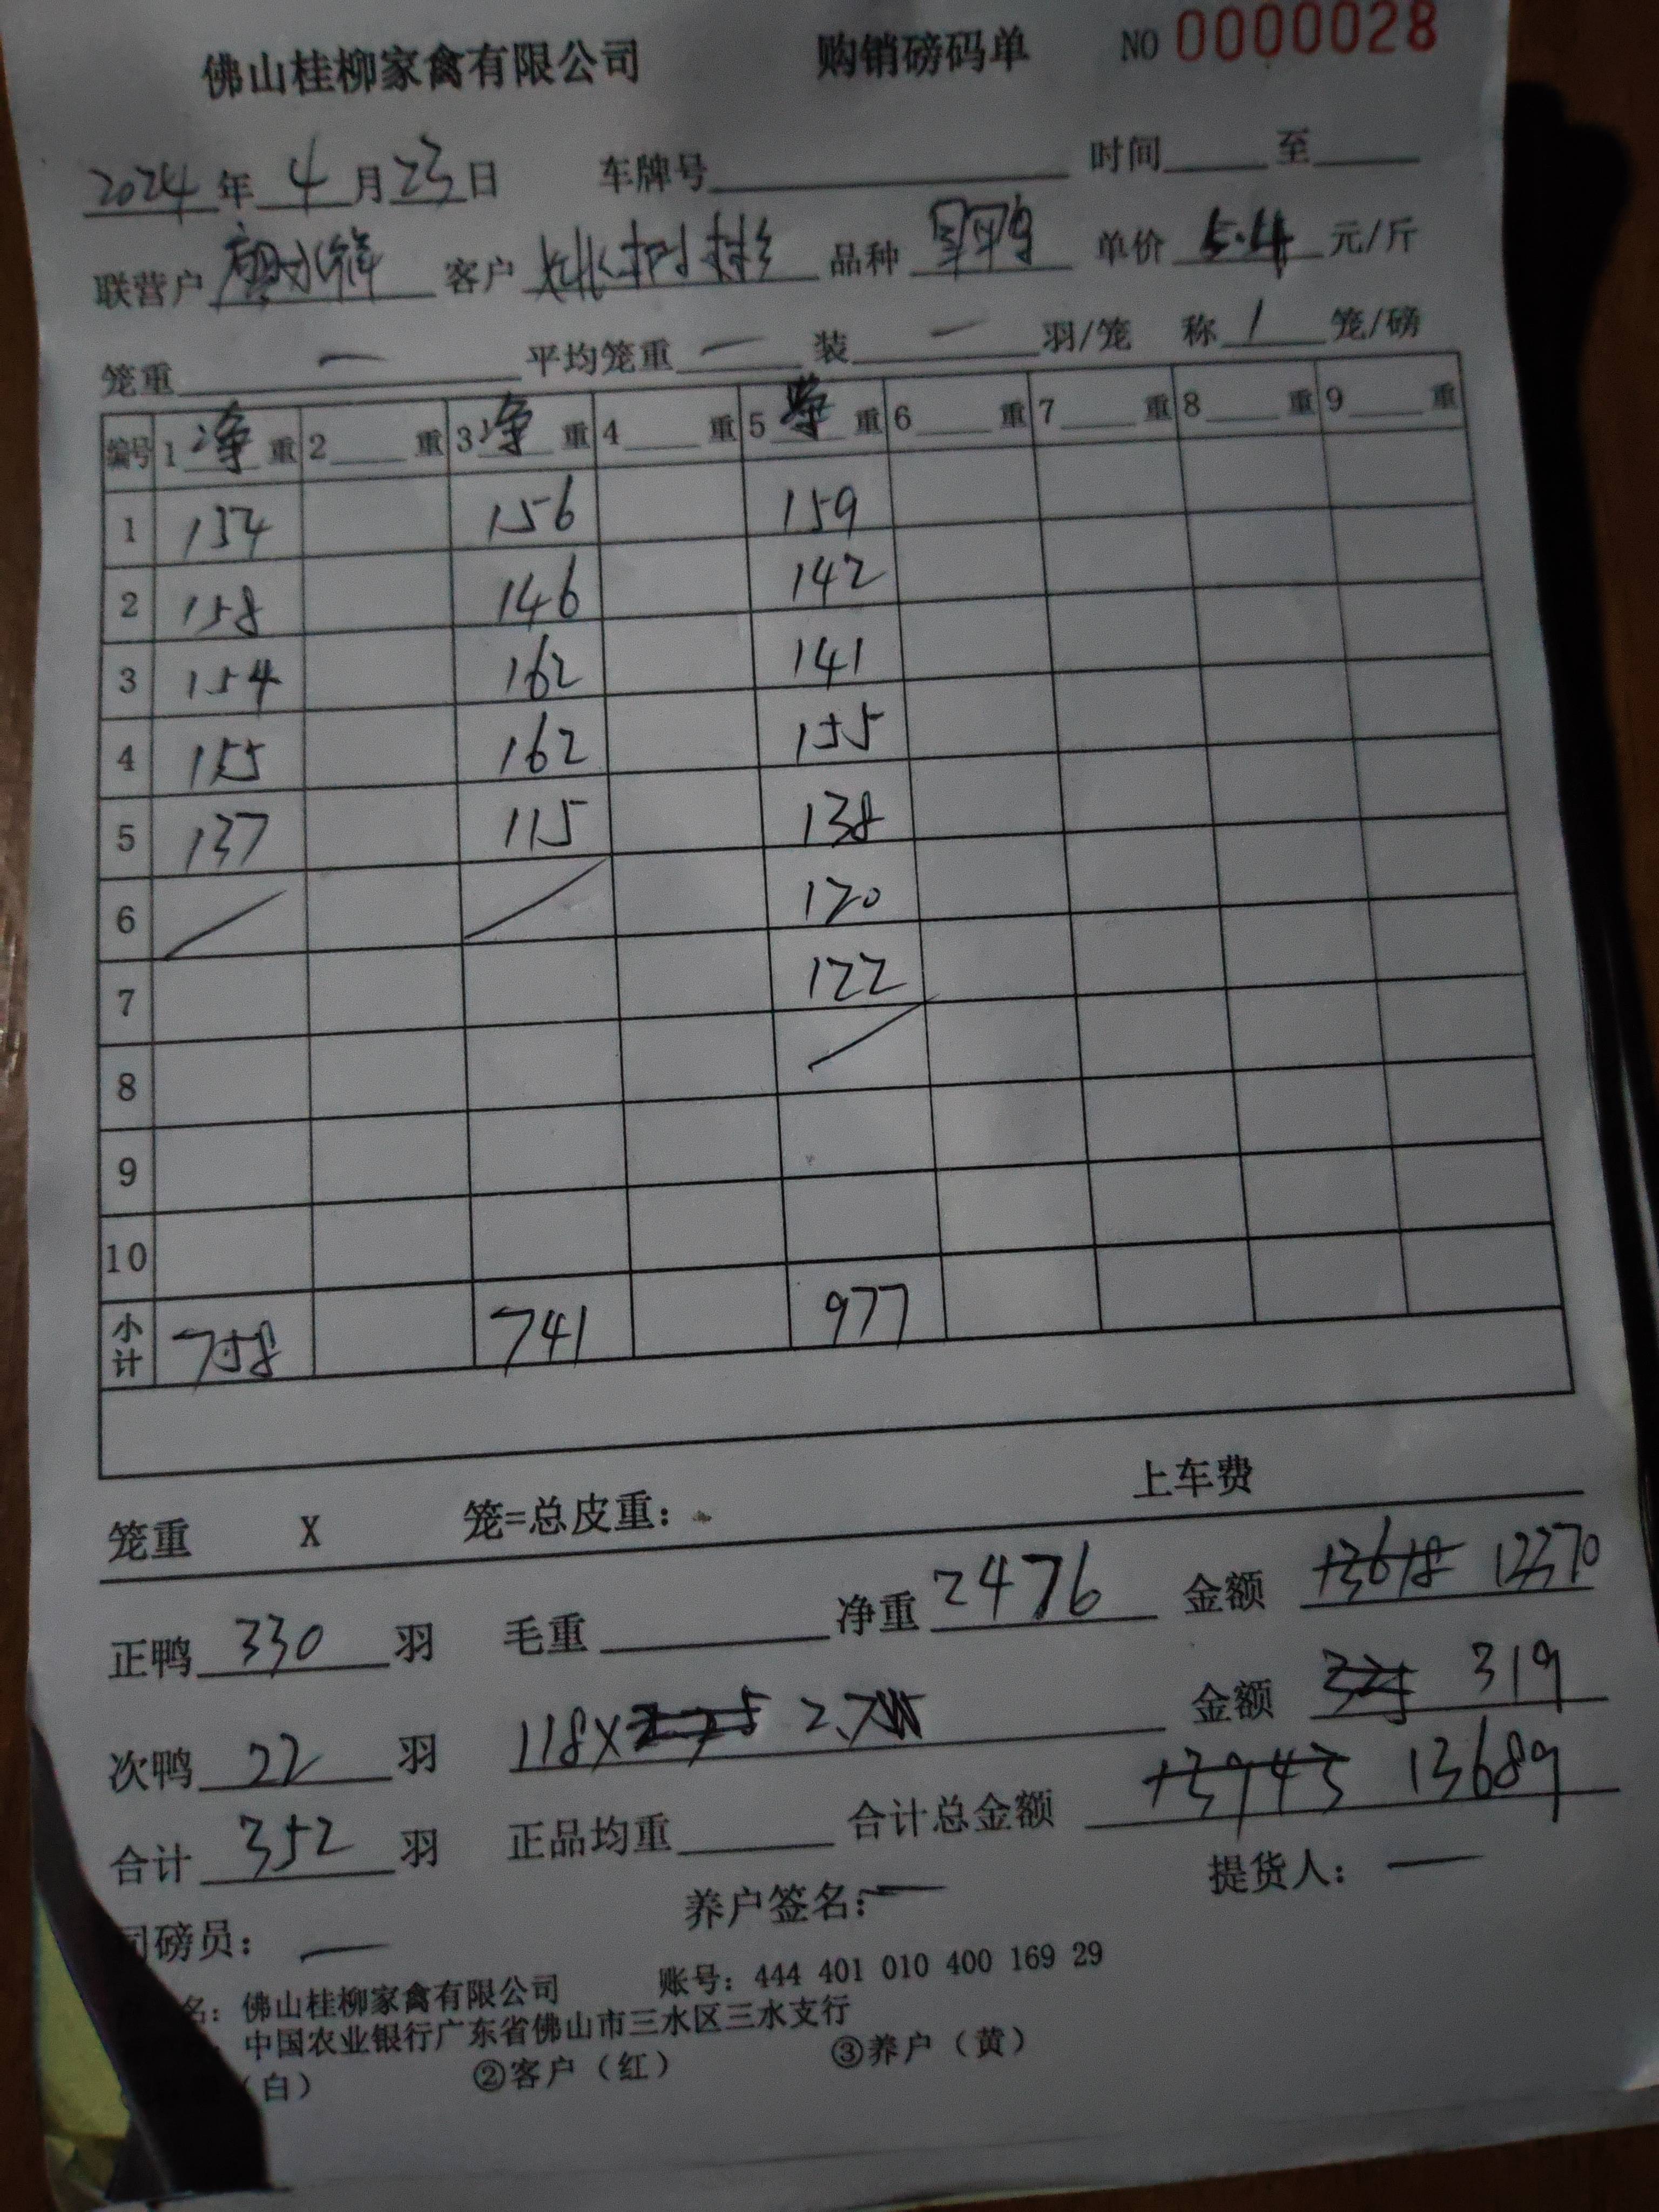 佛山桂柳家禽有限公司 购销磅码单 NO 0000028
2024年4月23日 车牌号 时间 至
联营户 廖水锋 客户 姚树彬 品种 单价 5.4 元/斤
笼重 一 平均笼重 一 装 一 羽/笼 称 1 笼/磅
编号 1 净 重 2 重 3 净 重 4 重 5 净 重 6 重 7 重 8 重 9 重
1 154 156 159
2 158 146 142
3 154 162 141
4 155 162 155
5 137 115 138
6 120
7 122
8
9
10
小计 758 741 977
笼重 X 笼=总皮重： 上车费
正鸭 330 羽 毛重 净重 2476 金额 13618 13370
次鸭 22 羽 118X 2.7 金额 325 319
合计 352 羽 正品均重 合计总金额 13943 13689
司磅员： 一 养户签名： 一 提货人： 一
名：佛山桂柳家禽有限公司 账号：444 401 010 400 169 29
中国农业银行广东省佛山市三水区三水支行
（白） ②客户（红） ③养户（黄）